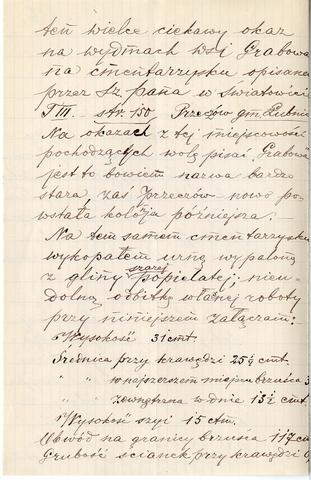 ten wielce ciekawy okaz
na wydmach wsi Grabowa
na cmentarzysku opisane
przez Sz. Pana w Światowici
T III. str. 150 Przeczów gm. Łubnic
Na okazach z tej miejscowości
pochodzących wolę pisać Grabowa
jest to bowiem nazwa bardzo
stara, zaś Przeczów nowo po-
wstała kolonja późniejsza.
Na tem samem cmentarzysku
wykopałem urnę wypaloną
z gliny szarej popielatej; nieu-
dolną odbitkę własnej roboty
przy niniejszem załączam:
Wysokość 31 cmt.
Średnica przy krawędzi 25½ cmt.
" " w najszerszem miejscu brzuśca 3
" zewnętrzna w dnie 13½ cmt.
Wysokość szyi 15 ctm.
Obwód na granicy brzuśca 117 cm
Grubość ścianek przy krawędzi